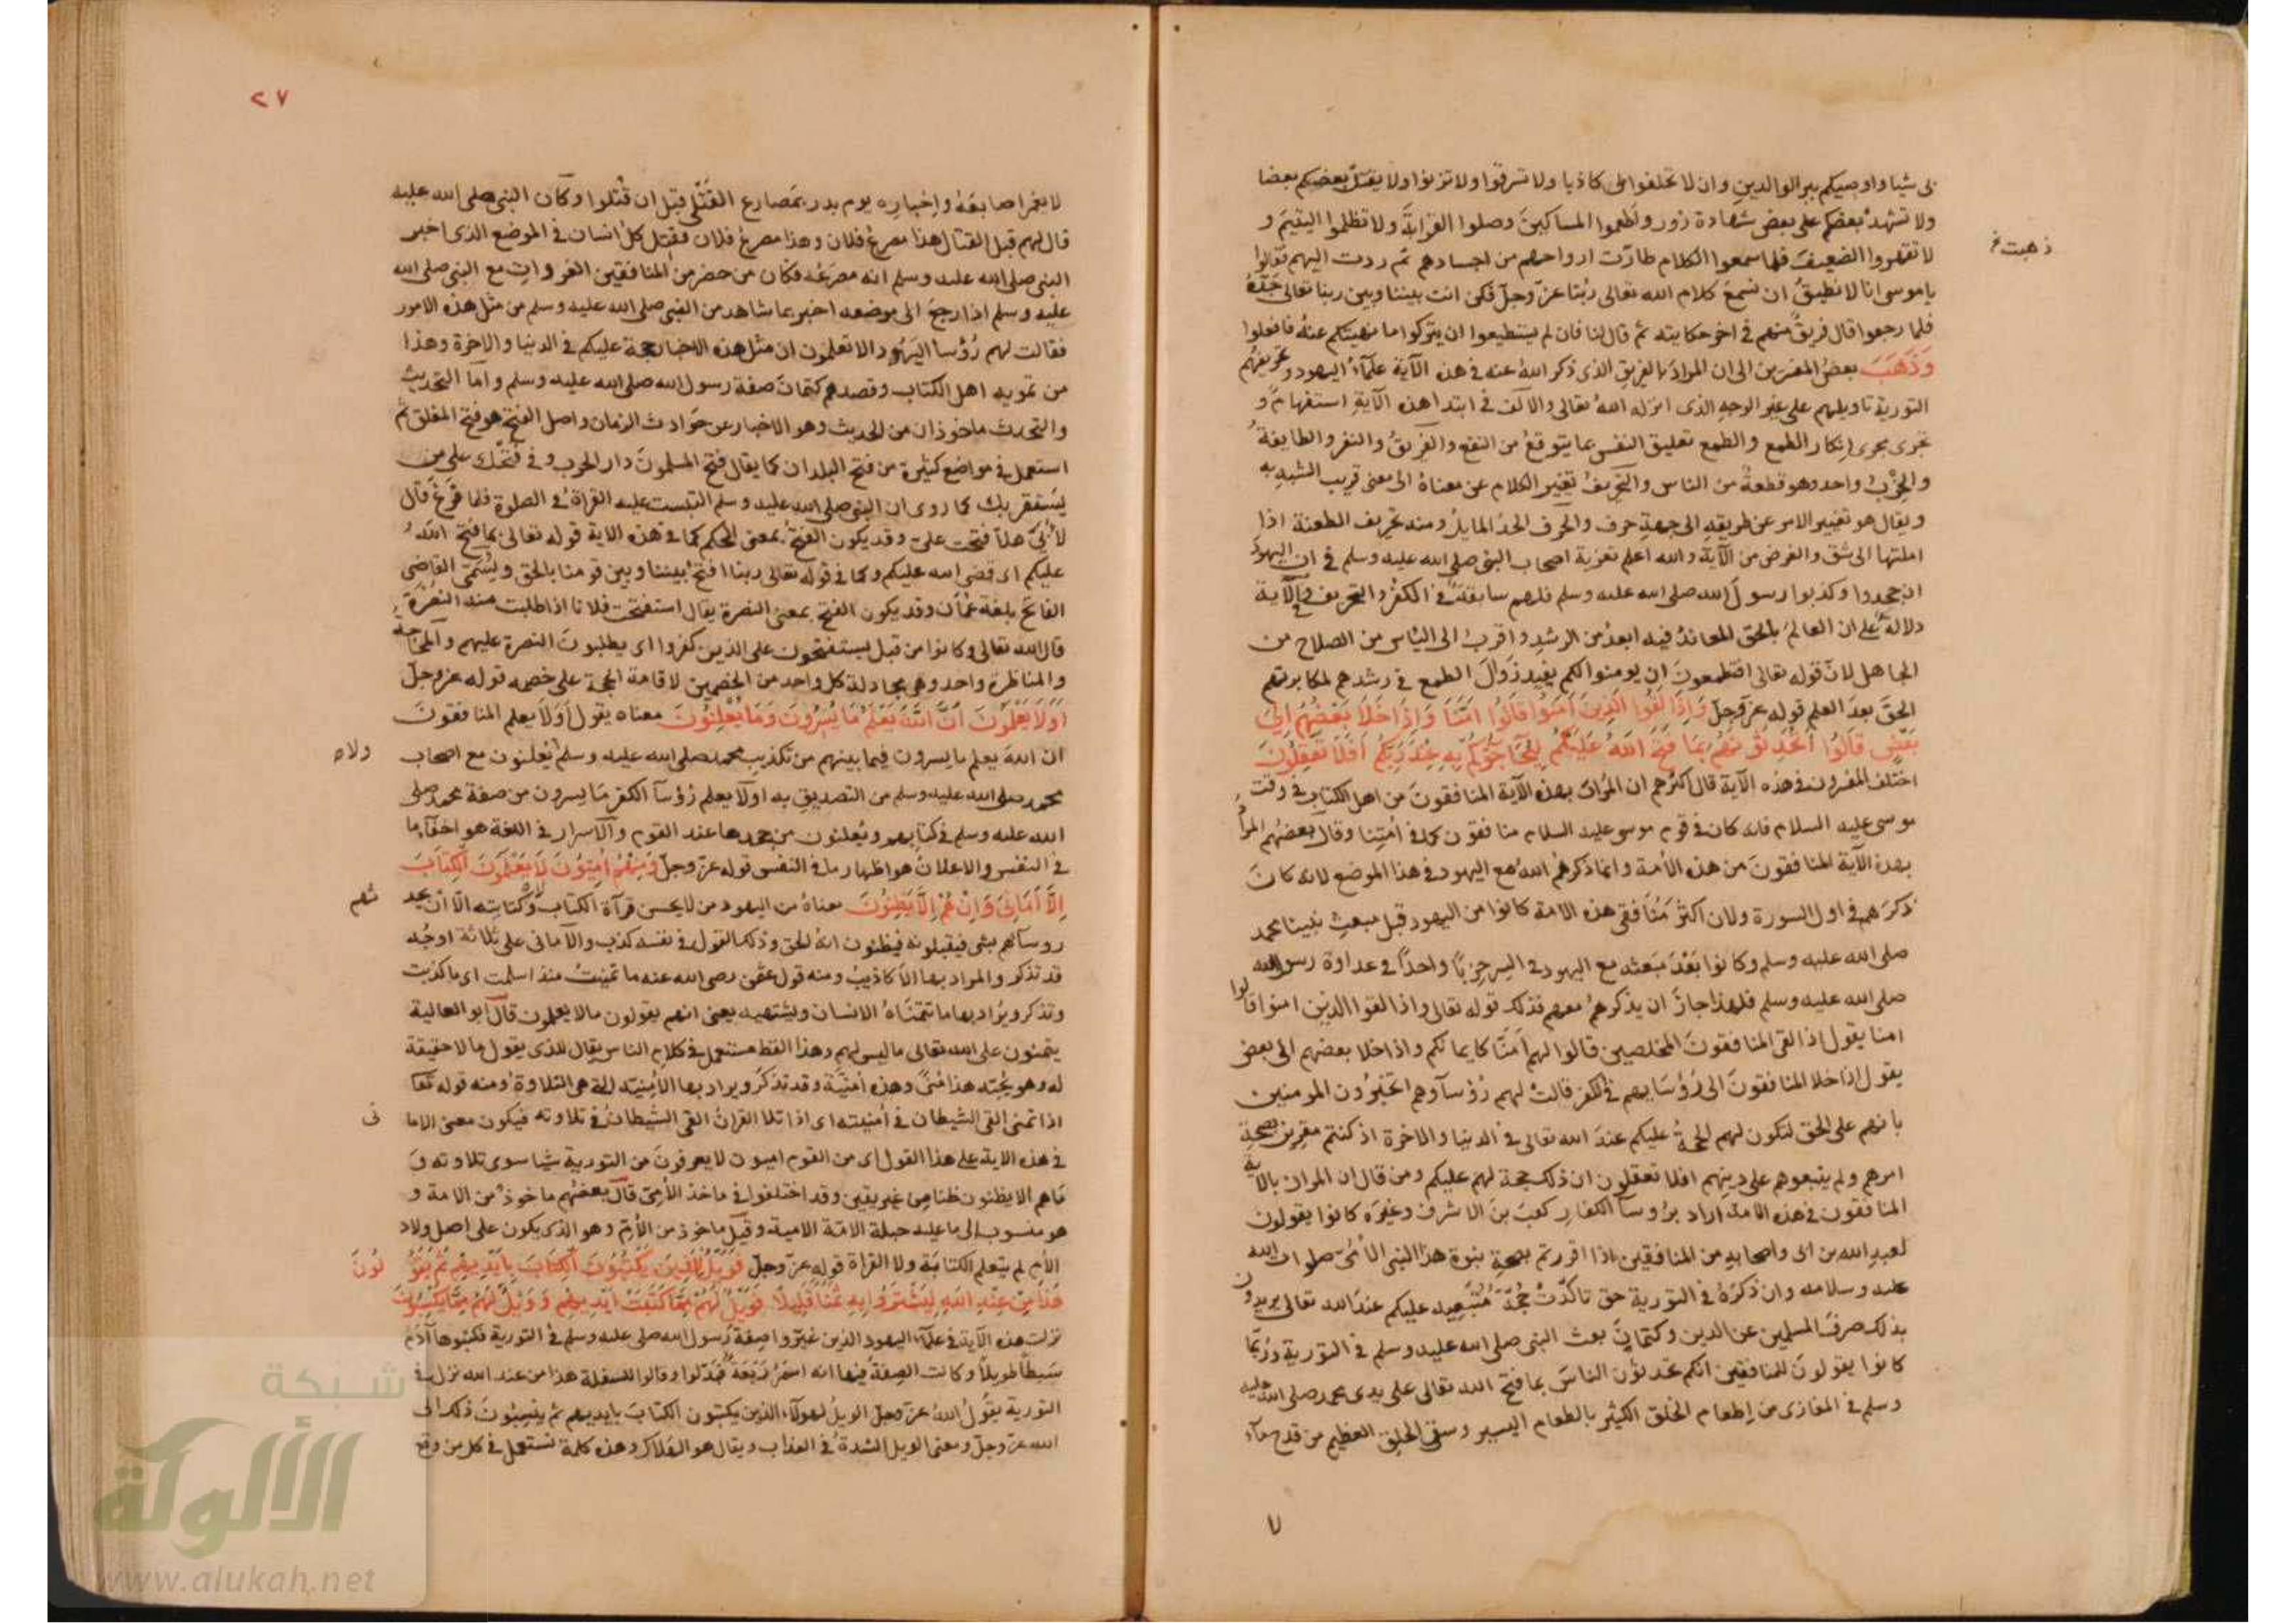 بى شيا واوصيكم ببر الوالدين وان لا تحلفوا بى كاذبا ولا تسرقوا ولا تزنوا ولا يقتل بعضكم بعضا
ولا تشهد بعضكم على بعض شهادة زور واطعموا المساكين وصلوا القرابة ولا تظلموا اليتيم و
لا تقهروا الضعيف فلما سمعوا الكلام طارت ارواحهم من اجسادهم ثم ردت اليهم فقالوا
ذهبت خ
ياموسى انا لا نطيق ان نسمع كلام الله تعالى ربنا عز وجل فكن انت بيننا وبين ربنا تعالى جده
فلما رجعوا قال فريق منهم فى اخر حكايته ثم قال لنا فان لم يستطيعوا ان يتركوا ما نهيتكم عنه فافعلوا
وذهب بعض المفسرين الى ان المراد بالفريق الذى ذكر الله عنه فى هذه الآية علماء اليهود وتحريفهم
التورية تاويلهم على غير الوجه الذى انزله الله تعالى والالف فى ابتدا هذه الآية استفهام و
تجرى مجرى انكار الطمع والطمع تعليق النفس بما يتوقع من النفع والفريق والنفر والطايفة
والحزب واحد وهو قطعة من الناس والتحريف تغيير الكلام عن معناه الى معنى قريب الشبه به
ويقال هو تغيير الامر عن طريقه الى جهة حرف والحرف الحد المايل ومنه تحريف الطعنة اذا
املتها الى شق والغرض من الآية والله اعلم تعزية اصحاب النبى صلى الله عليه وسلم فى ان اليهود
ان جحدوا وكذبوا رسول الله صلى الله عليه وسلم فلهم سابقة فى الكفر والتحريف وفى الآية
دلالة على ان العالم بالحق المعاند فيه ابعد من الرشد واقرب الى الياس من الصلاح من
الجاهل لان قوله تعالى افتطمعون ان يومنوا لكم يفيد زوال الطمع فى رشدهم لمكابرتهم
الحق بعد العلم قوله عز وجل وَإِذَا لَقُوا الَّذِينَ آمَنُوا قَالُوا آمَنَّا وَإِذَا خَلَا بَعْضُهُمْ إِلَى
بَعْضٍ قَالُوا أَتُحَدِّثُونَهُمْ بِمَا فَتَحَ اللَّهُ عَلَيْكُمْ لِيُحَاجُّوكُمْ بِهِ عِنْدَ رَبِّكُمْ أَفَلَا تَعْقِلُونَ
اختلف المفسرون فى هذه الآية قال اكثرهم ان المراد بهذه الآية المنافقون من اهل الكتاب فى وقت
موسى عليه السلام فانه كان فى قوم موسى عليه السلام منافقون كما فى امتنا وقال بعضهم المراد
بهذه الآية المنافقون من هذه الامة وانما ذكرهم الله مع اليهود فى هذا الموضع لانه كان
ذكرهم فى اول السورة ولان اكثر منافقى هذه الامة كانوا من اليهود قبل مبعث نبينا محمد
صلى الله عليه وسلم وكانوا بعد مبعثه مع اليهود فى السر حزبا واحدا فى عداوة رسول الله
صلى الله عليه وسلم فلهذا جاز ان يذكرهم معهم فذلك قوله تعالى واذا لقوا الذين امنوا قالوا
امنا يقول اذا لقى المنافقون المخلصين قالوا لهم آمنا كايمانكم واذا خلا بعضهم الى بعض
يقول اذا خلا المنافقون الى رؤسايهم فى الكفر قالت لهم رؤسآوهم اتخبرون المومنين
بانهم على الحق لتكون لهم الحجة عليكم عند الله تعالى فى الدنيا والاخرة اذ كنتم مقرين بصحة
امرهم ولم يتبعوهم على دينهم افلا تعقلون ان ذلك حجة لهم عليكم ومن قال ان المراد بالآية
المنافقون فى هذه الامة اراد بروسآ الكفار كعب بن الاشرف وغيره كانوا يقولون
لعبد الله بن ابى واصحابه من المنافقين اذا اقررتم بصحة نبوة هذا النبى الامى صلوات الله
عليه وسلامه وان ذكره فى التورية حق تاكدت حجة متبعيه عليكم عند الله تعالى يريدون
بذلك صرف المسلمين عن الدين وكتمان بعث النبى صلى الله عليه وسلم فى التورية وربما
كانوا يقولون للمنافقين انكم تحدثون الناس بما فتح الله تعالى على يدى محمد صلى الله عليه
وسلم فى المغازى من اطعام الخلق الكثير بالطعام اليسير وسقى الخلق العظيم من قدح ماء
٧
٢٧
لا يغمر اصابعه واخباره يوم بدر بمصارع القتلى قبل ان قتلوا وكان النبى صلى الله عليه
قال لهم قبل القتال هذا مصرع فلان وهذا مصرع فلان فقتل كل انسان فى الموضع الذى اخبر
النبى صلى الله عليه وسلم انه مصرعه فكان من حضر من المنافقين الغزوات مع النبى صلى الله
عليه وسلم اذا رجع الى موضعه اخبر بما شاهد من النبى صلى الله عليه وسلم من مثل هذه الامور
فقالت لهم رؤسا اليهود الا تعلمون ان مثل هذه الاخبار حجة عليكم فى الدنيا والاخرة وهذا
من تمويه اهل الكتاب وقصدهم كتمان صفة رسول الله صلى الله عليه وسلم واما التحديث
والتحدث ماخوذان من الحديث وهو الاخبار عن حوادث الزمان واصل الفتح هو فتح المغلق ثم
استعمل فى مواضع كثيرة من فتح البلدان كما يقال فتح المسلمون دار الحرب وفى فتحك على من
يستقريك كما روى ان النبى صلى الله عليه وسلم التبست عليه القراة فى الصلوة فلما فرغ قال
لأبىّ هلا فتحت علىّ وقد يكون الفتح بمعنى الحكم كما فى هذه الاية قوله تعالى بما فتح الله
عليكم اى قضى الله عليكم وكما فى قوله تعالى ربنا افتح بيننا وبين قومنا بالحق ويسمى القاضى
الفاتح بلغة عمان وقد يكون الفتح بمعنى النصرة يقال استفتحت فلانا اذا طلبت منه النصرة
قال الله تعالى وكانوا من قبل يستفتحون على الذين كفروا اى يطلبون النصرة عليهم والمحاجة
والمناظرة واحد وهى مجادلة كل واحد من الخصمين لاقامة الحجة على خصمه قوله عز وجل
أَوَلَا يَعْلَمُونَ أَنَّ اللَّهَ يَعْلَمُ مَا يُسِرُّونَ وَمَا يُعْلِنُونَ معناه يقول أولا يعلم المنافقون
ان الله يعلم ما يسرون فيما بينهم من تكذيب محمد صلى الله عليه وسلم يعلنون مع اصحاب
محمد صلى الله عليه وسلم من التصديق به اولا يعلم رؤسآ الكفر ما يسرون من صفة محمد صلى
الله عليه وسلم فى كتابهم ويعلنون من جحدها عند القوم والاسرار فى اللغة هو اخفاء ما
فى النفس والاعلان هو اظهار ما فى النفس قوله عز وجل وَمِنْهُمْ أُمِّيُّونَ لَا يَعْلَمُونَ الْكِتَابَ
إِلَّا أَمَانِيَّ وَإِنْ هُمْ إِلَّا يَظُنُّونَ معناه من اليهود من لا يحسن قرآة الكتاب ولا كتابته الا ان يحد
ثهم
روسآهم بشى فيقبلونه فيظنون انه الحق وذلك القول فى نفسه كذب والامانى على ثلاثة اوجه
قد تذكر والمراد بها الاكاذيب ومنه قول عثمن رضى الله عنه ما تمنيت منذ اسلمت اى ما كذبت
وتذكر ويراد بها ما تتمناه الانسان ويشتهيه يعنى انهم يقولون مالا يعلمون قال ابو العالية
يتمنون على الله تعالى ما ليس لهم وهذا اللفظ مستعمل فى كلام الناس يقال للذى يقول ما لا حقيقة
له وهو يحبه هذا منىً وهذه امنية وقد تذكر ويراد بها الأمنية التى هى التلاوة ومنه قوله تعا
اذا تمنى القى الشيطان فى امنيته اى اذا تلا القران القى الشيطان فى تلاوته فيكون معنى الاما
نى
فى هذه الاية على هذا القول اى من القوم اميون لا يعرفون من التورية شيا سوى تلاوته و
ما هم الا يظنون ظنا من غير يقين وقد اختلفوا فى ماخذ الأمى قال بعضهم ماخوذ من الامة و
هو منسوب الى ما عليه جبلة الامة الامية وقيل ماخوذ من الأم وهو الذى يكون على اصل ولاد
الأم لم يتعلم الكتابة ولا القراة قوله عز وجل فَوَيْلٌ لِلَّذِينَ يَكْتُبُونَ الْكِتَابَ بِأَيْدِيهِمْ ثُمَّ يَقُو لُونَ
هَذَا مِنْ عِنْدِ اللَّهِ لِيَشْتَرُوا بِهِ ثَمَنًا قَلِيلًا فَوَيْلٌ لَهُمْ مِمَّا كَتَبَتْ أَيْدِيهِمْ وَوَيْلٌ لَهُمْ مِمَّا يَكْسِبُونَ
نزلت هذه الآية فى علمآء اليهود الذين غيروا صفة رسول الله صلى الله عليه وسلم فى التورية فكتبوها آدم
سبطا طويلا وكانت الصفة فيها انه اسمر ربعة فبدلوا وقالوا للسفلة هذا من عند الله نزل فى
التورية يقول الله عز وجل الويل لهولآء الذين يكتبون الكتاب بايديهم ثم ينسبون ذلك الى
الله عز وجل ومعنى الويل الشدة فى العذاب ويقال هو الهلاك وهذه كلمة تستعمل فى كل من وقع
شبكة
الألوكة
www.alukah.net